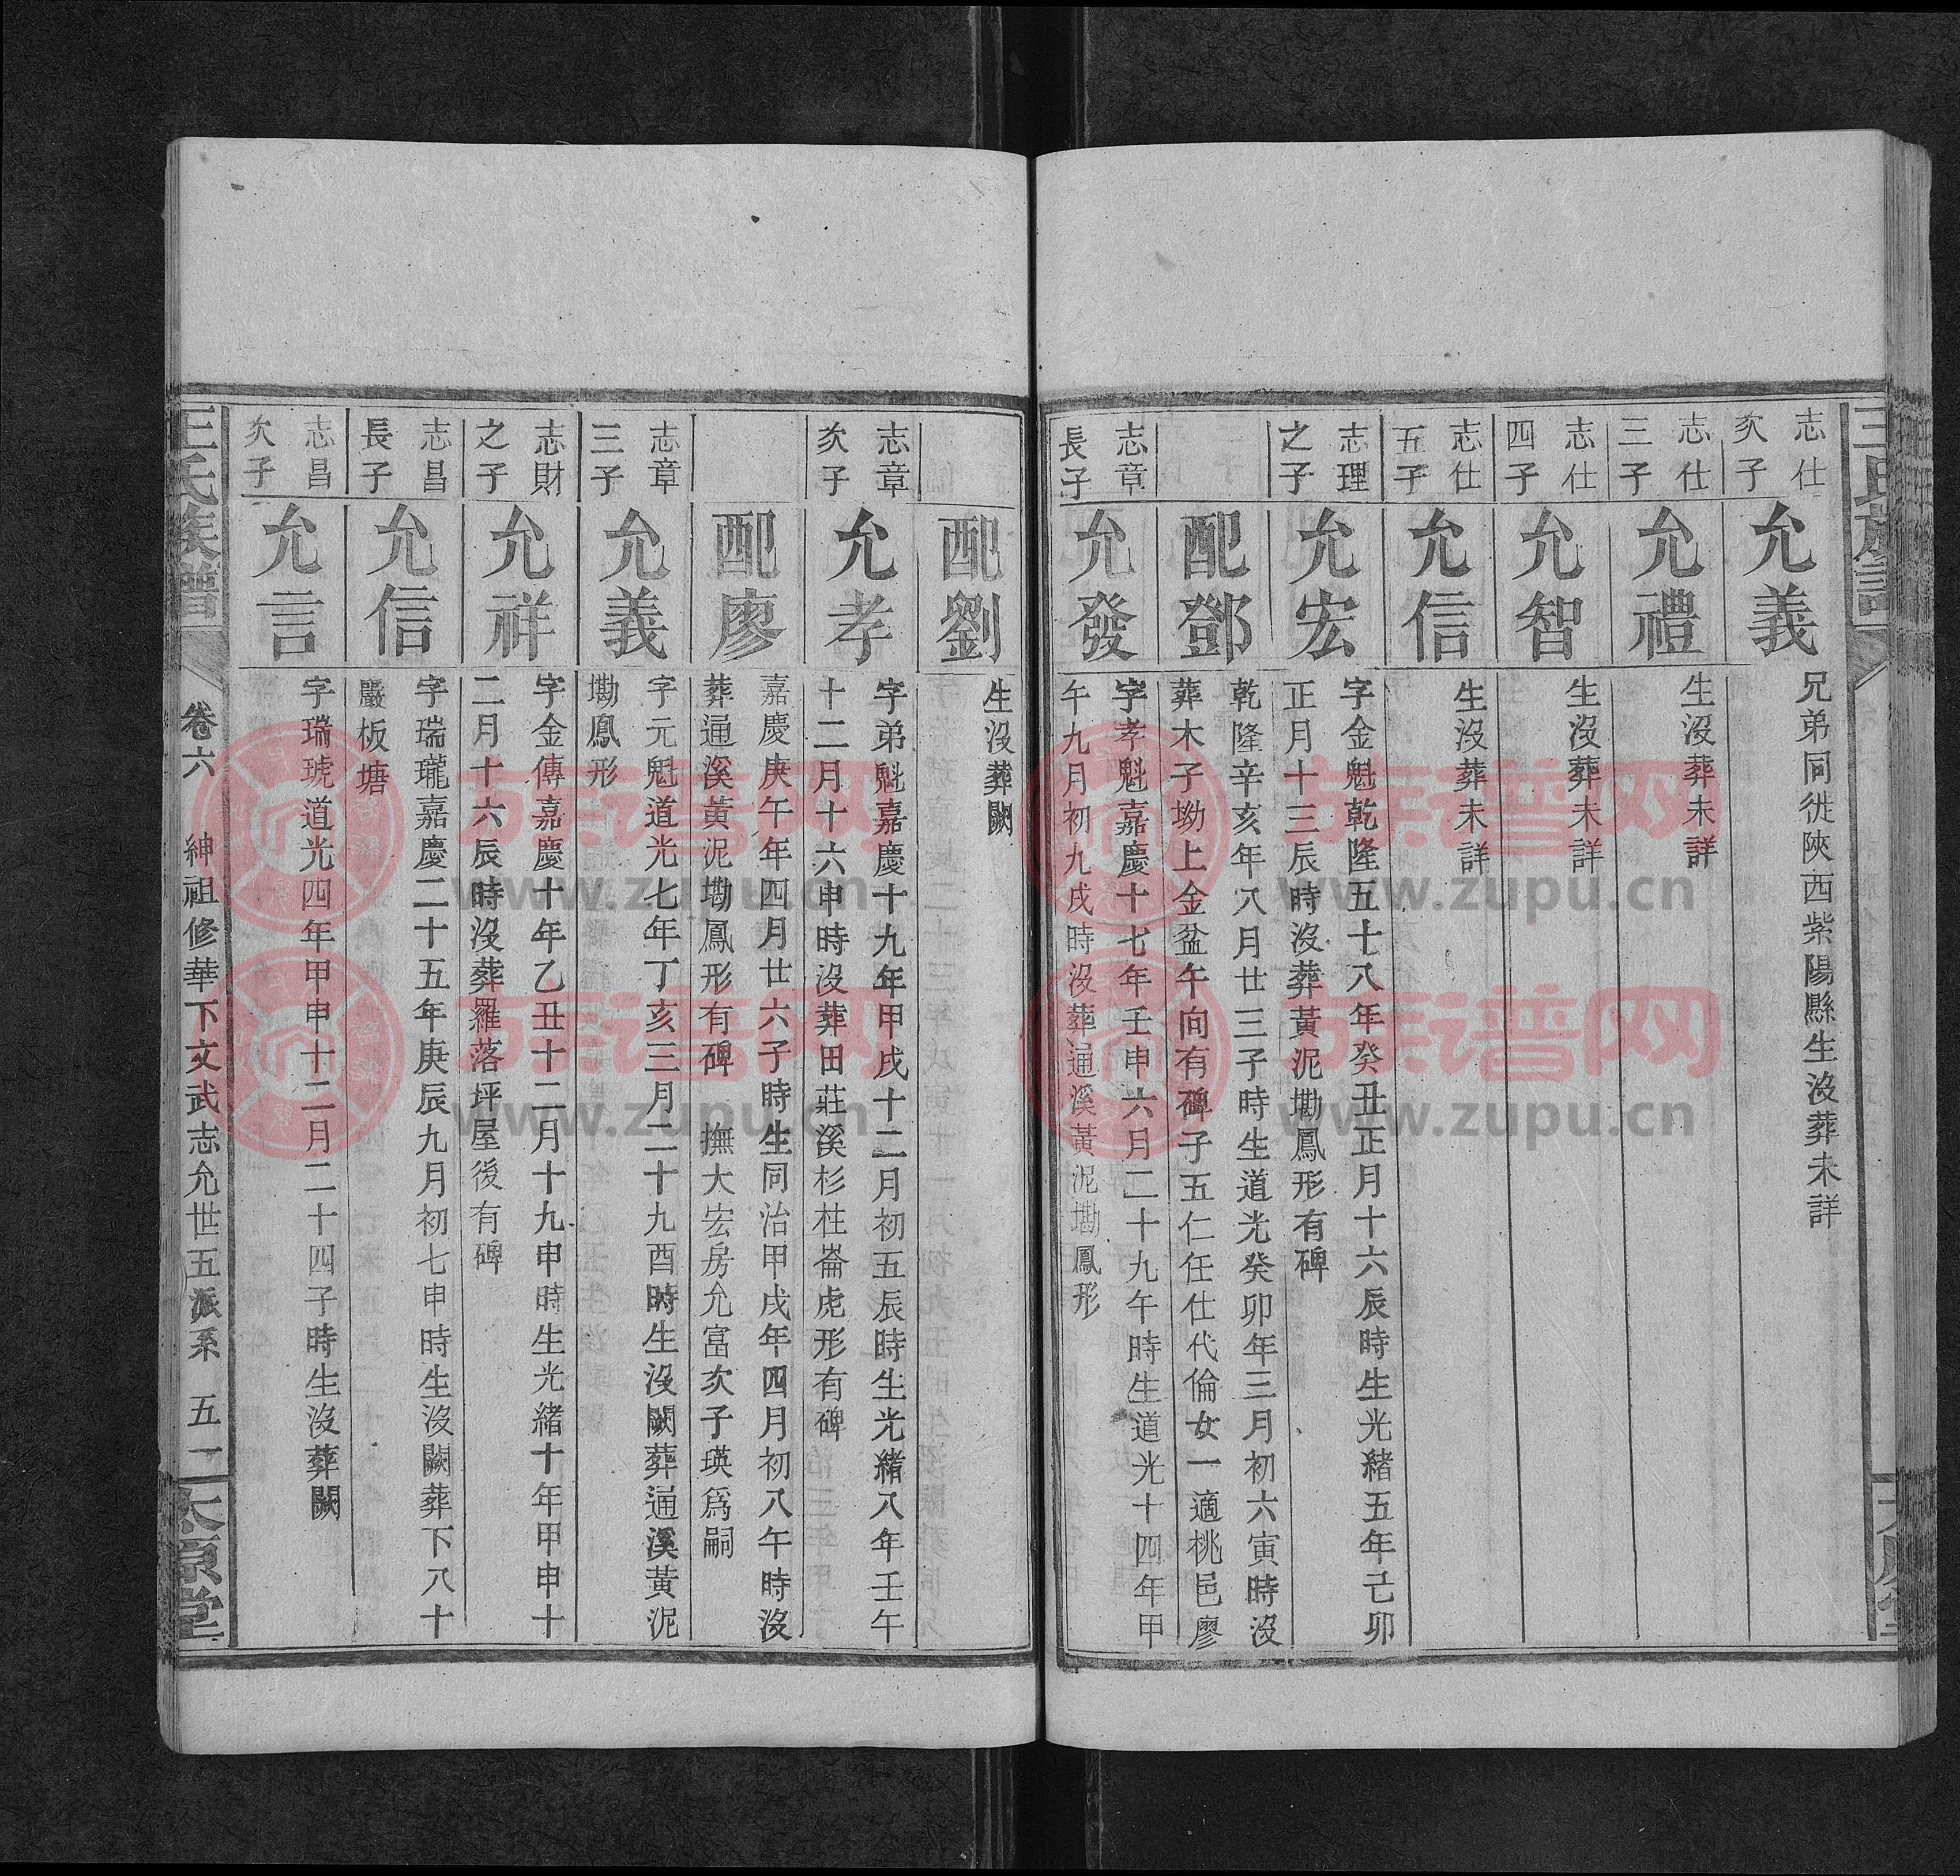 王氏族譜
志仕
次子
允義
兄弟同徙陝西紫陽縣生沒葬未詳
志仕
三子
允禮
生沒葬未詳
志仕
四子
允智
生沒葬未詳
志仕
五子
允信
生沒葬未詳
志理
之子
允宏
字金魁乾隆五十八年癸丑正月十六辰時生光緒五年己卯
正月十三辰時沒葬黃泥墈鳳形有碑
配鄧
乾隆辛亥年八月廿三子時生道光癸卯年三月初六寅時沒
葬木子坳上金盆午向有碑子五仁任仕代倫女一適桃邑廖
志章
長子
允發
字孝魁嘉慶十七年壬申六月二十九午時生道光十四年甲
午九月初九戌時沒葬通溪黃泥墈鳳形
配劉
生沒葬闕
志章
次子
允孝
字弟魁嘉慶十九年甲戌十二月初五辰時生光緒八年壬午
十二月十六申時沒葬田莊溪杉柱崙虎形有碑
配廖
嘉慶庚午年四月廿六子時生同治甲戌年四月初八午時沒
葬通溪黃泥墈鳳形有碑 撫大宏房允富次子瑛爲嗣
志章
三子
允義
字元魁道光七年丁亥三月二十九酉時生沒闕葬通溪黃泥
墈鳳形
志財
之子
允祥
字金傳嘉慶十年乙丑十二月十九申時生光緒十年甲申十
二月十六辰時沒葬羅落坪屋後有碑
志昌
長子
允信
字瑞瓏嘉慶二十五年庚辰九月初七申時生沒闕葬下八十
嚴板塘
志昌
次子
允言
字瑞琥道光四年甲申十二月二十四子時生沒葬闕
王氏族譜
卷六 紳祖修華下文武志允世五派系 五一
太原堂
族谱网
www.zupu.cn
族谱网
www.zupu.cn
族谱网
www.zupu.cn
族谱网
www.zupu.cn